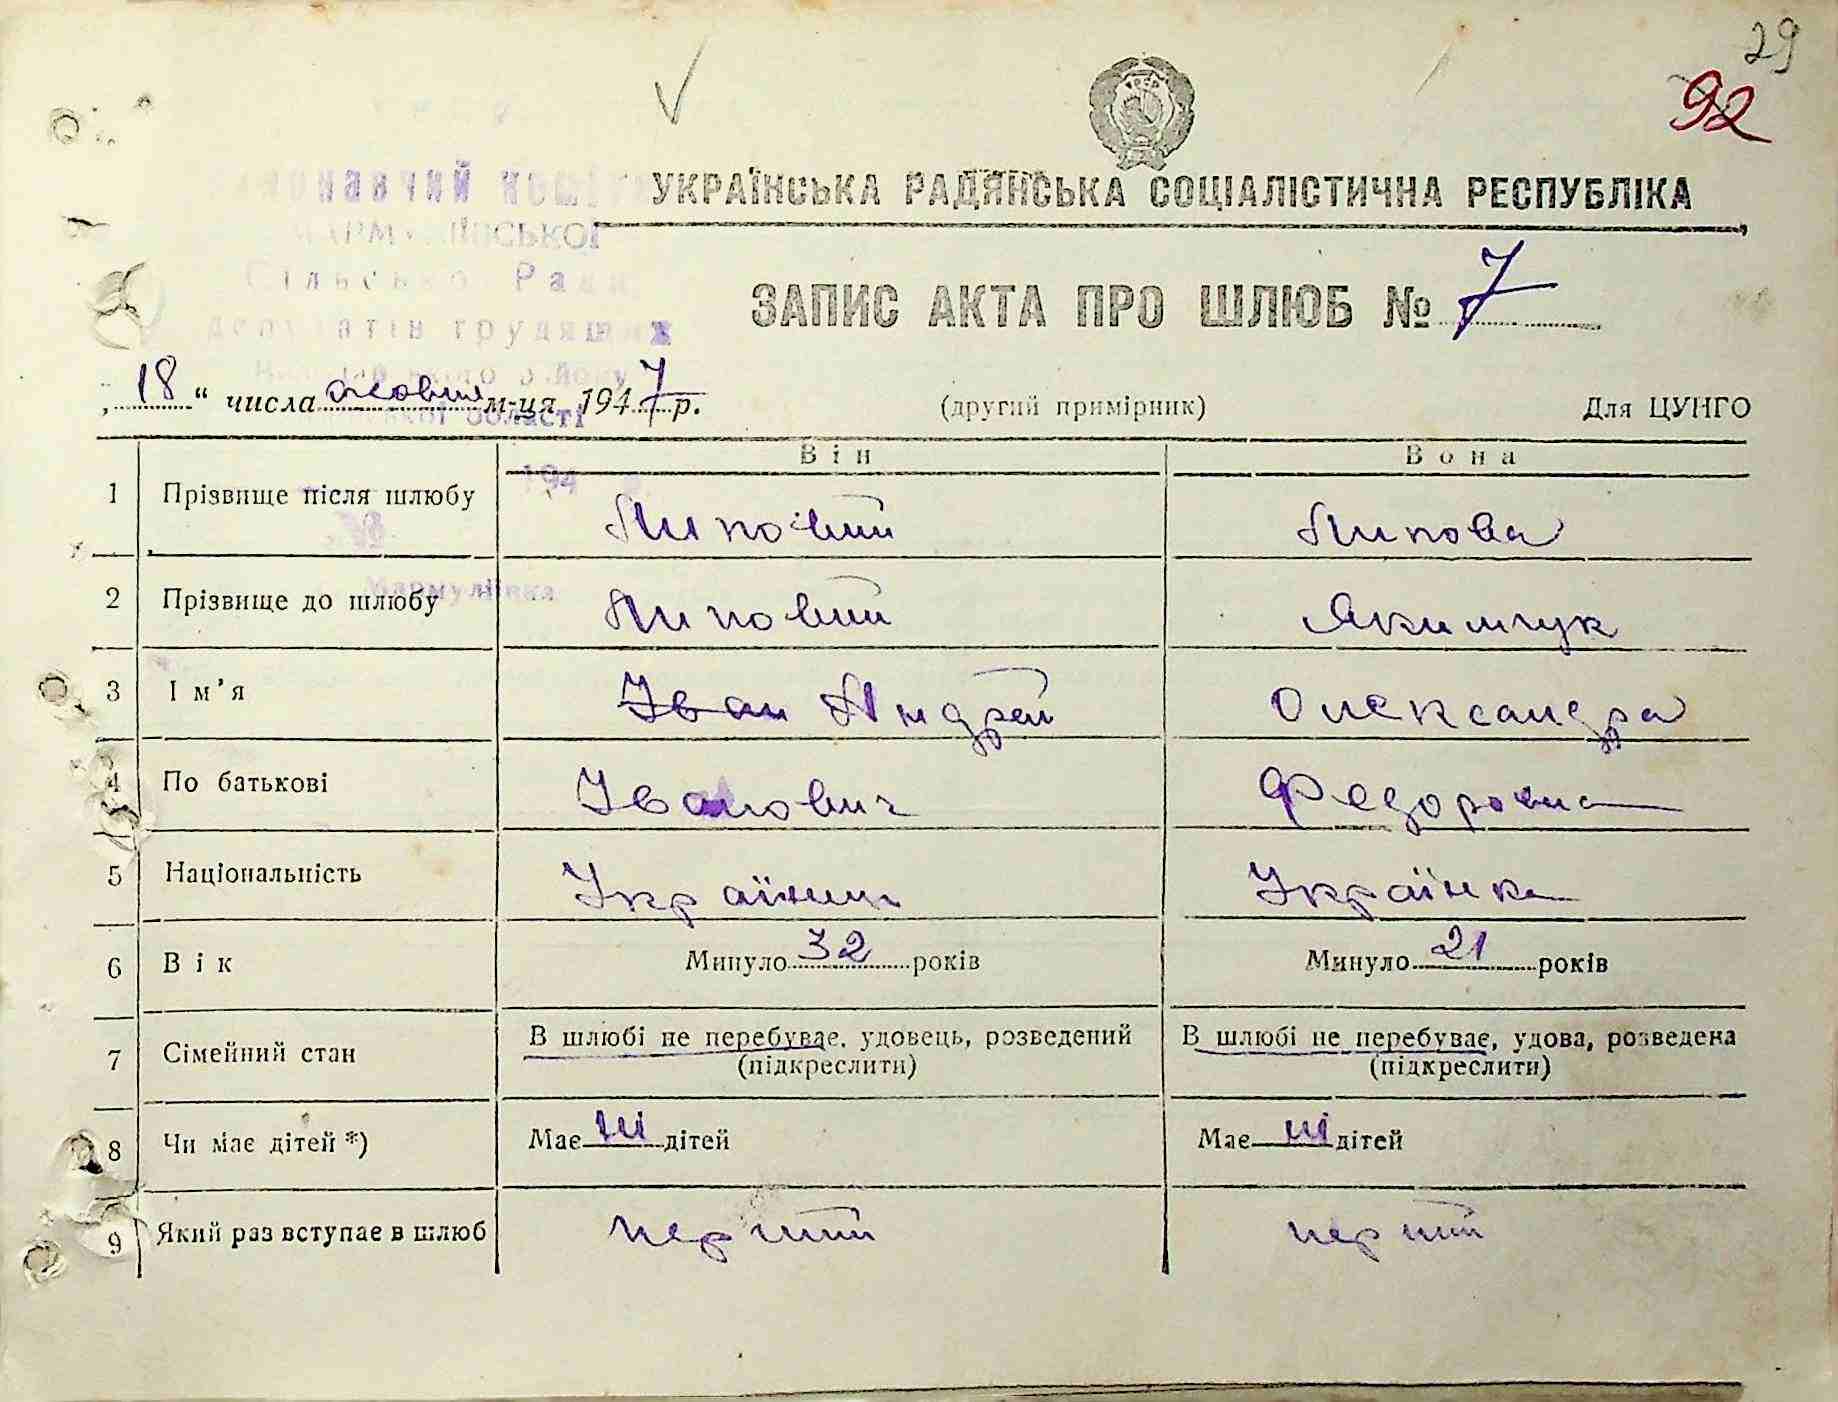 29
92
УКРАЇНСЬКА РАДЯНСЬКА СОЦІАЛІСТИЧНА РЕСПУБЛІКА
Ради
депутатів трудящих
області
ЗАПИС АКТА ПРО ШЛЮБ № 7
„18“ числа жовтня м-ця 1947 р.
(другий примірник)
Для ЦУНГО
Він Вона
1 Прізвище після шлюбу Липовий Липова
2 Прізвище до шлюбу Липовий Якимчук
Мармуліївка
3 Ім’я Іван Андрей Олександра
4 По батькові Іванович Федоровна
5 Національність Українець Українка
6 Вік Минуло 32 років Минуло 21 років
7 Сімейний стан В шлюбі не перебуває, удовець, розведений В шлюбі не перебуває, удова, розведена
(підкреслити) (підкреслити)
8 Чи має дітей *) Має ні дітей Має ні дітей
9 Який раз вступає в шлюб перший перший